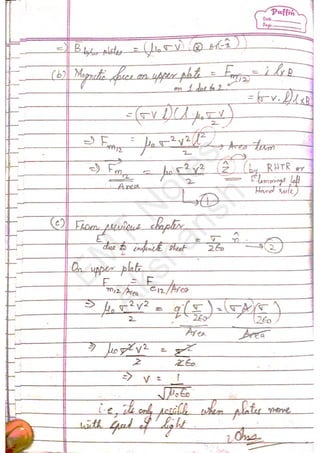 Puffin
Date
Page
=) B below plates = (μ₀ σ v) (⊗ or (-x̂))
(b) Magnetic force on upper plate = F m12 = i l x B
on 1 due to 2
= (σ v. l) l x B
= (σ v l) (l μ₀ σ v / 2)
=) F m12 = μ₀ σ² v² l² / 2 → Area term
=) F m12 / Area = μ₀ σ² v² / 2 (ẑ) (by RHTR or
Flemmings left
Hand rule)
→ ①
(c) From previous chapter,
E due to infinite sheet = σ / 2ε₀ n̂ → ②
On upper plate
F m12/Area = F e12/Area
=> μ₀ σ² v² / 2 = q (σ / 2ε₀) / Area = (σ A) (σ / 2ε₀) / Area
=> μ₀ σ² v² / 2 = σ² / 2ε₀
=> v = 1 / √μ₀ε₀
i.e, its only possible when plates move
with speed of light.
Ans